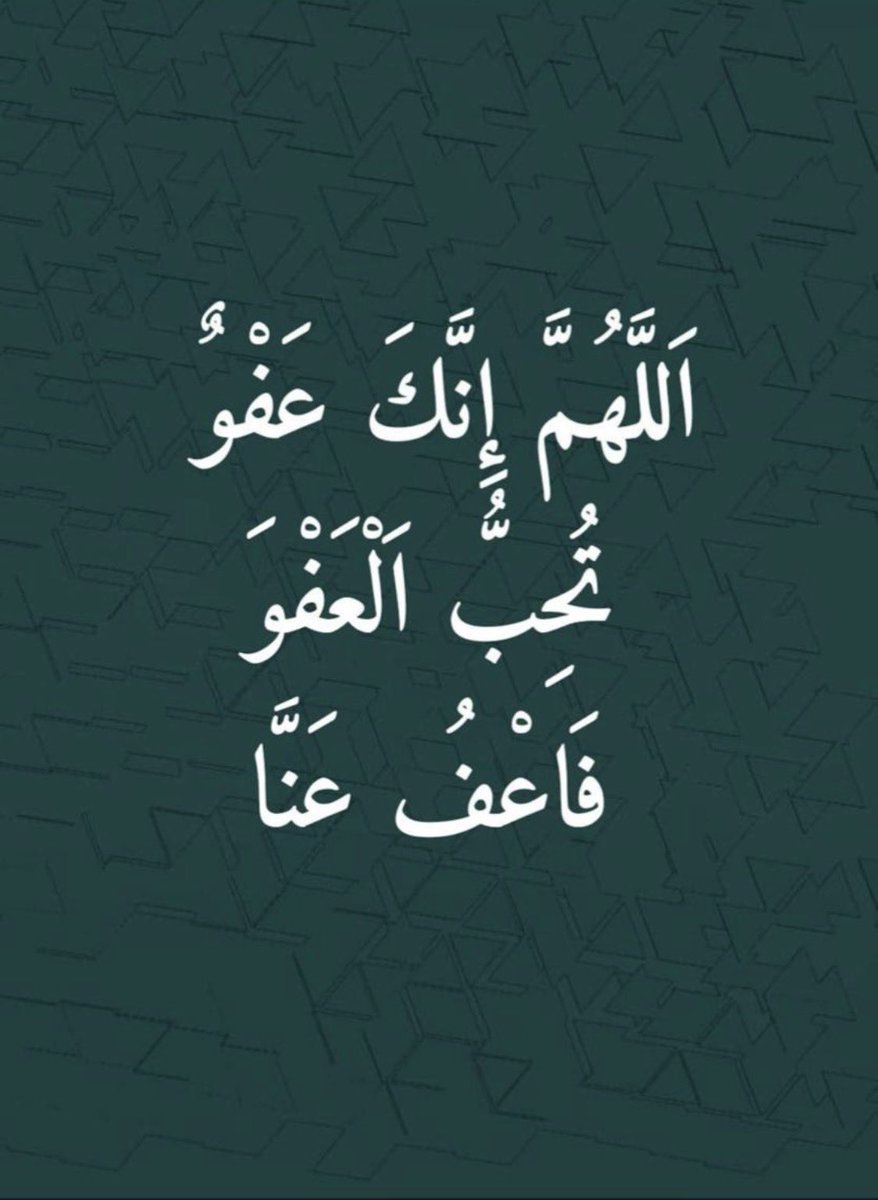 اَللَّهُمَّ إِنَّكَ عَفْوٌ
تُحَِبُّ اَلْعَفْوَ
فَاَعْفُ عَنَّا